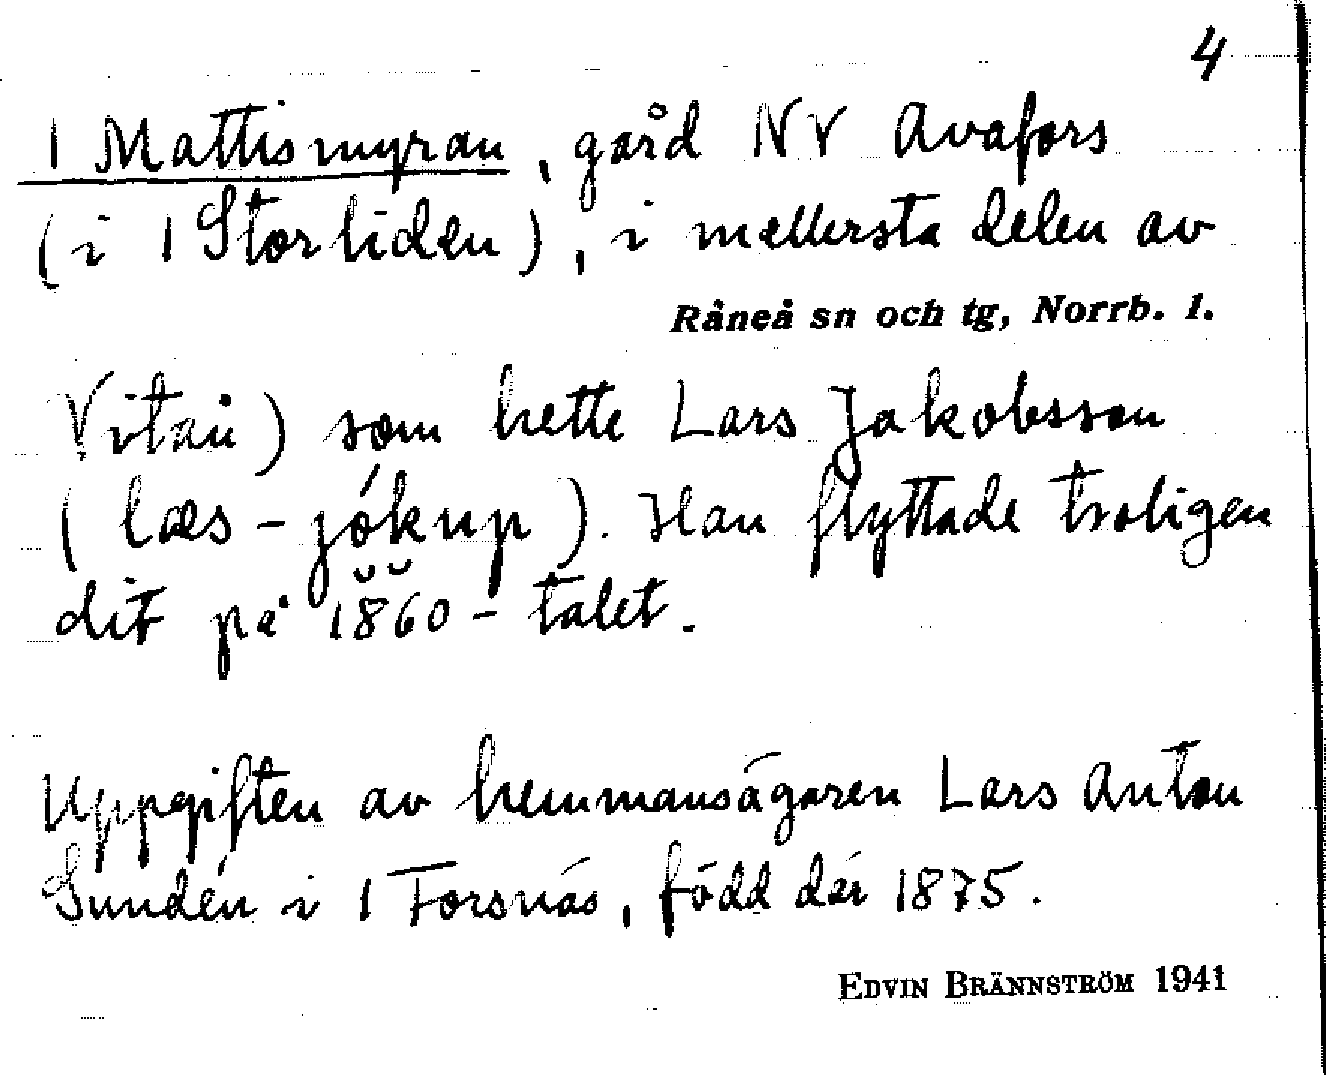 4
1 Mattismyran, gård NV Avafors
(i 1 Storliden), i mellersta delen av
Råneå sn och tg, Norrb. l.
Vitåū) som hette Lars Jakobsson
(læs-jókup). Han flyttade troligen
dit på 1860-talet.
Uppgiften av hemmansägaren Lars Anton
Sundén i 1 Forsnäs, född där 1875.
EDVIN BRÄNNSTRÖM 1941